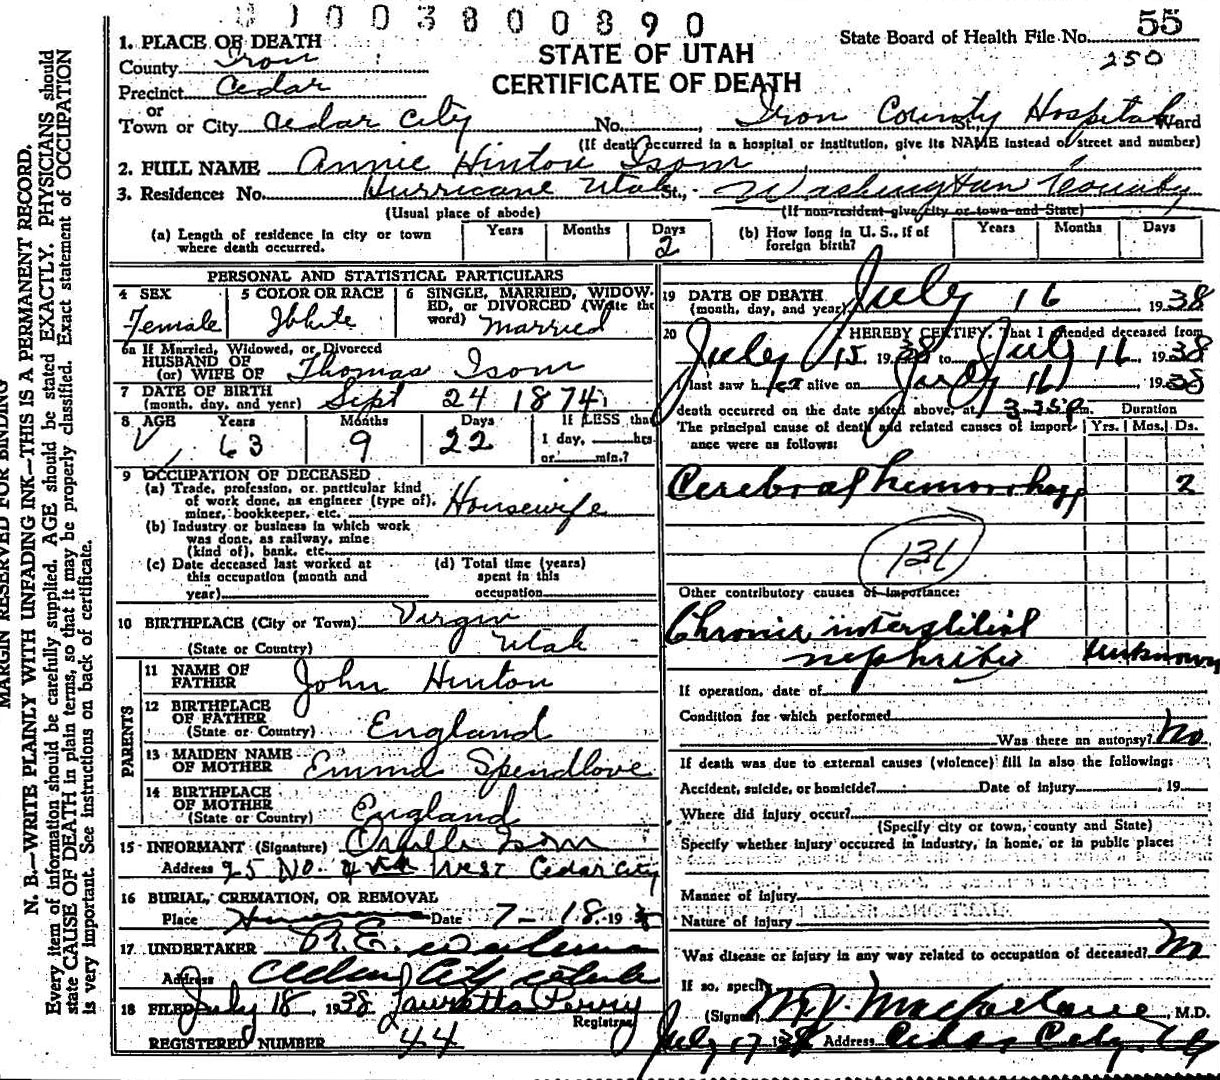 0003800890
55
State Board of Health File No.
250
STATE OF UTAH
CERTIFICATE OF DEATH
1. PLACE OF DEATH
County Iron
Precinct Cedar
or
Town or City Cedar City No. Iron County Hospital St., Ward
(If death occurred in a hospital or institution, give its NAME instead of street and number)
2. FULL NAME Annie Hinton Isom
3. Residence: No. Hurricane Utah St., Washington County
(Usual place of abode) (If non-resident give city or town and State)
(a) Length of residence in city or town where death occurred. Years Months Days 2
(b) How long in U. S., if of foreign birth? Years Months Days
PERSONAL AND STATISTICAL PARTICULARS
4 SEX Female
5 COLOR OR RACE White
6 SINGLE, MARRIED, WIDOWED, or DIVORCED (Write the word) Married
6a If Married, Widowed, or Divorced
HUSBAND OF
(or) WIFE OF Thomas Isom
7 DATE OF BIRTH
(month, day, and year) Sept 24 1874
8 AGE Years 63 Months 9 Days 22
If LESS than
1 day, hrs.
or min.?
9 OCCUPATION OF DECEASED
(a) Trade, profession, or particular kind
of work done, as engineer (type of),
miner, bookkeeper, etc. Housewife
(b) Industry or business in which work
was done, as railway, mine
(kind of), bank, etc.
(c) Date deceased last worked at
this occupation (month and
year)
(d) Total time (years)
spent in this
occupation
10 BIRTHPLACE (City or Town) Virgin
(State or Country) Utah
PARENTS
11 NAME OF
FATHER John Hinton
12 BIRTHPLACE
OF FATHER
(State or Country) England
13 MAIDEN NAME
OF MOTHER Emma Spendlove
14 BIRTHPLACE
OF MOTHER
(State or Country) England
15 INFORMANT (Signature) Isom
Address 25 No. 4th West Cedar City
16 BURIAL, CREMATION, OR REMOVAL
Place Date 7-18-1938
17 UNDERTAKER R.E.
Address Cedar City Utah
18 FILED July 18, 1938 Lauretta Perry
Registrar
REGISTERED NUMBER 44
19 DATE OF DEATH
(month, day, and year) July 16 1938
20 I HEREBY CERTIFY, That I attended deceased from
July 15 1938 to July 16 1938
I last saw her alive on July 16 1938
death occurred on the date stated above, at m.
Duration
The principal cause of death and related causes of importance were as follows: Yrs. Mos. Ds.
Cerebral hemorrhage 2
131
Other contributory causes of importance:
Chronic interstitial
nephritis Unknown
If operation, date of
Condition for which performed
Was there an autopsy? No
If death was due to external causes (violence) fill in also the following:
Accident, suicide, or homicide? Date of injury 19
Where did injury occur?
(Specify city or town, county and State)
Specify whether injury occurred in industry, in home, or in public place:
Manner of injury
Nature of injury
Was disease or injury in any way related to occupation of deceased? No
If so, specify
(Signed) M.J. Macfarlane, M.D.
July 17 1938 Address Cedar City, Ut
MARGIN RESERVED FOR BINDING
N. B.—WRITE PLAINLY WITH UNFADING INK—THIS IS A PERMANENT RECORD.
Every item of information should be carefully supplied. AGE should be stated EXACTLY. PHYSICIANS should
state CAUSE OF DEATH in plain terms, so that it may be properly classified. Exact statement of OCCUPATION
is very important. See instructions on back of certificate.